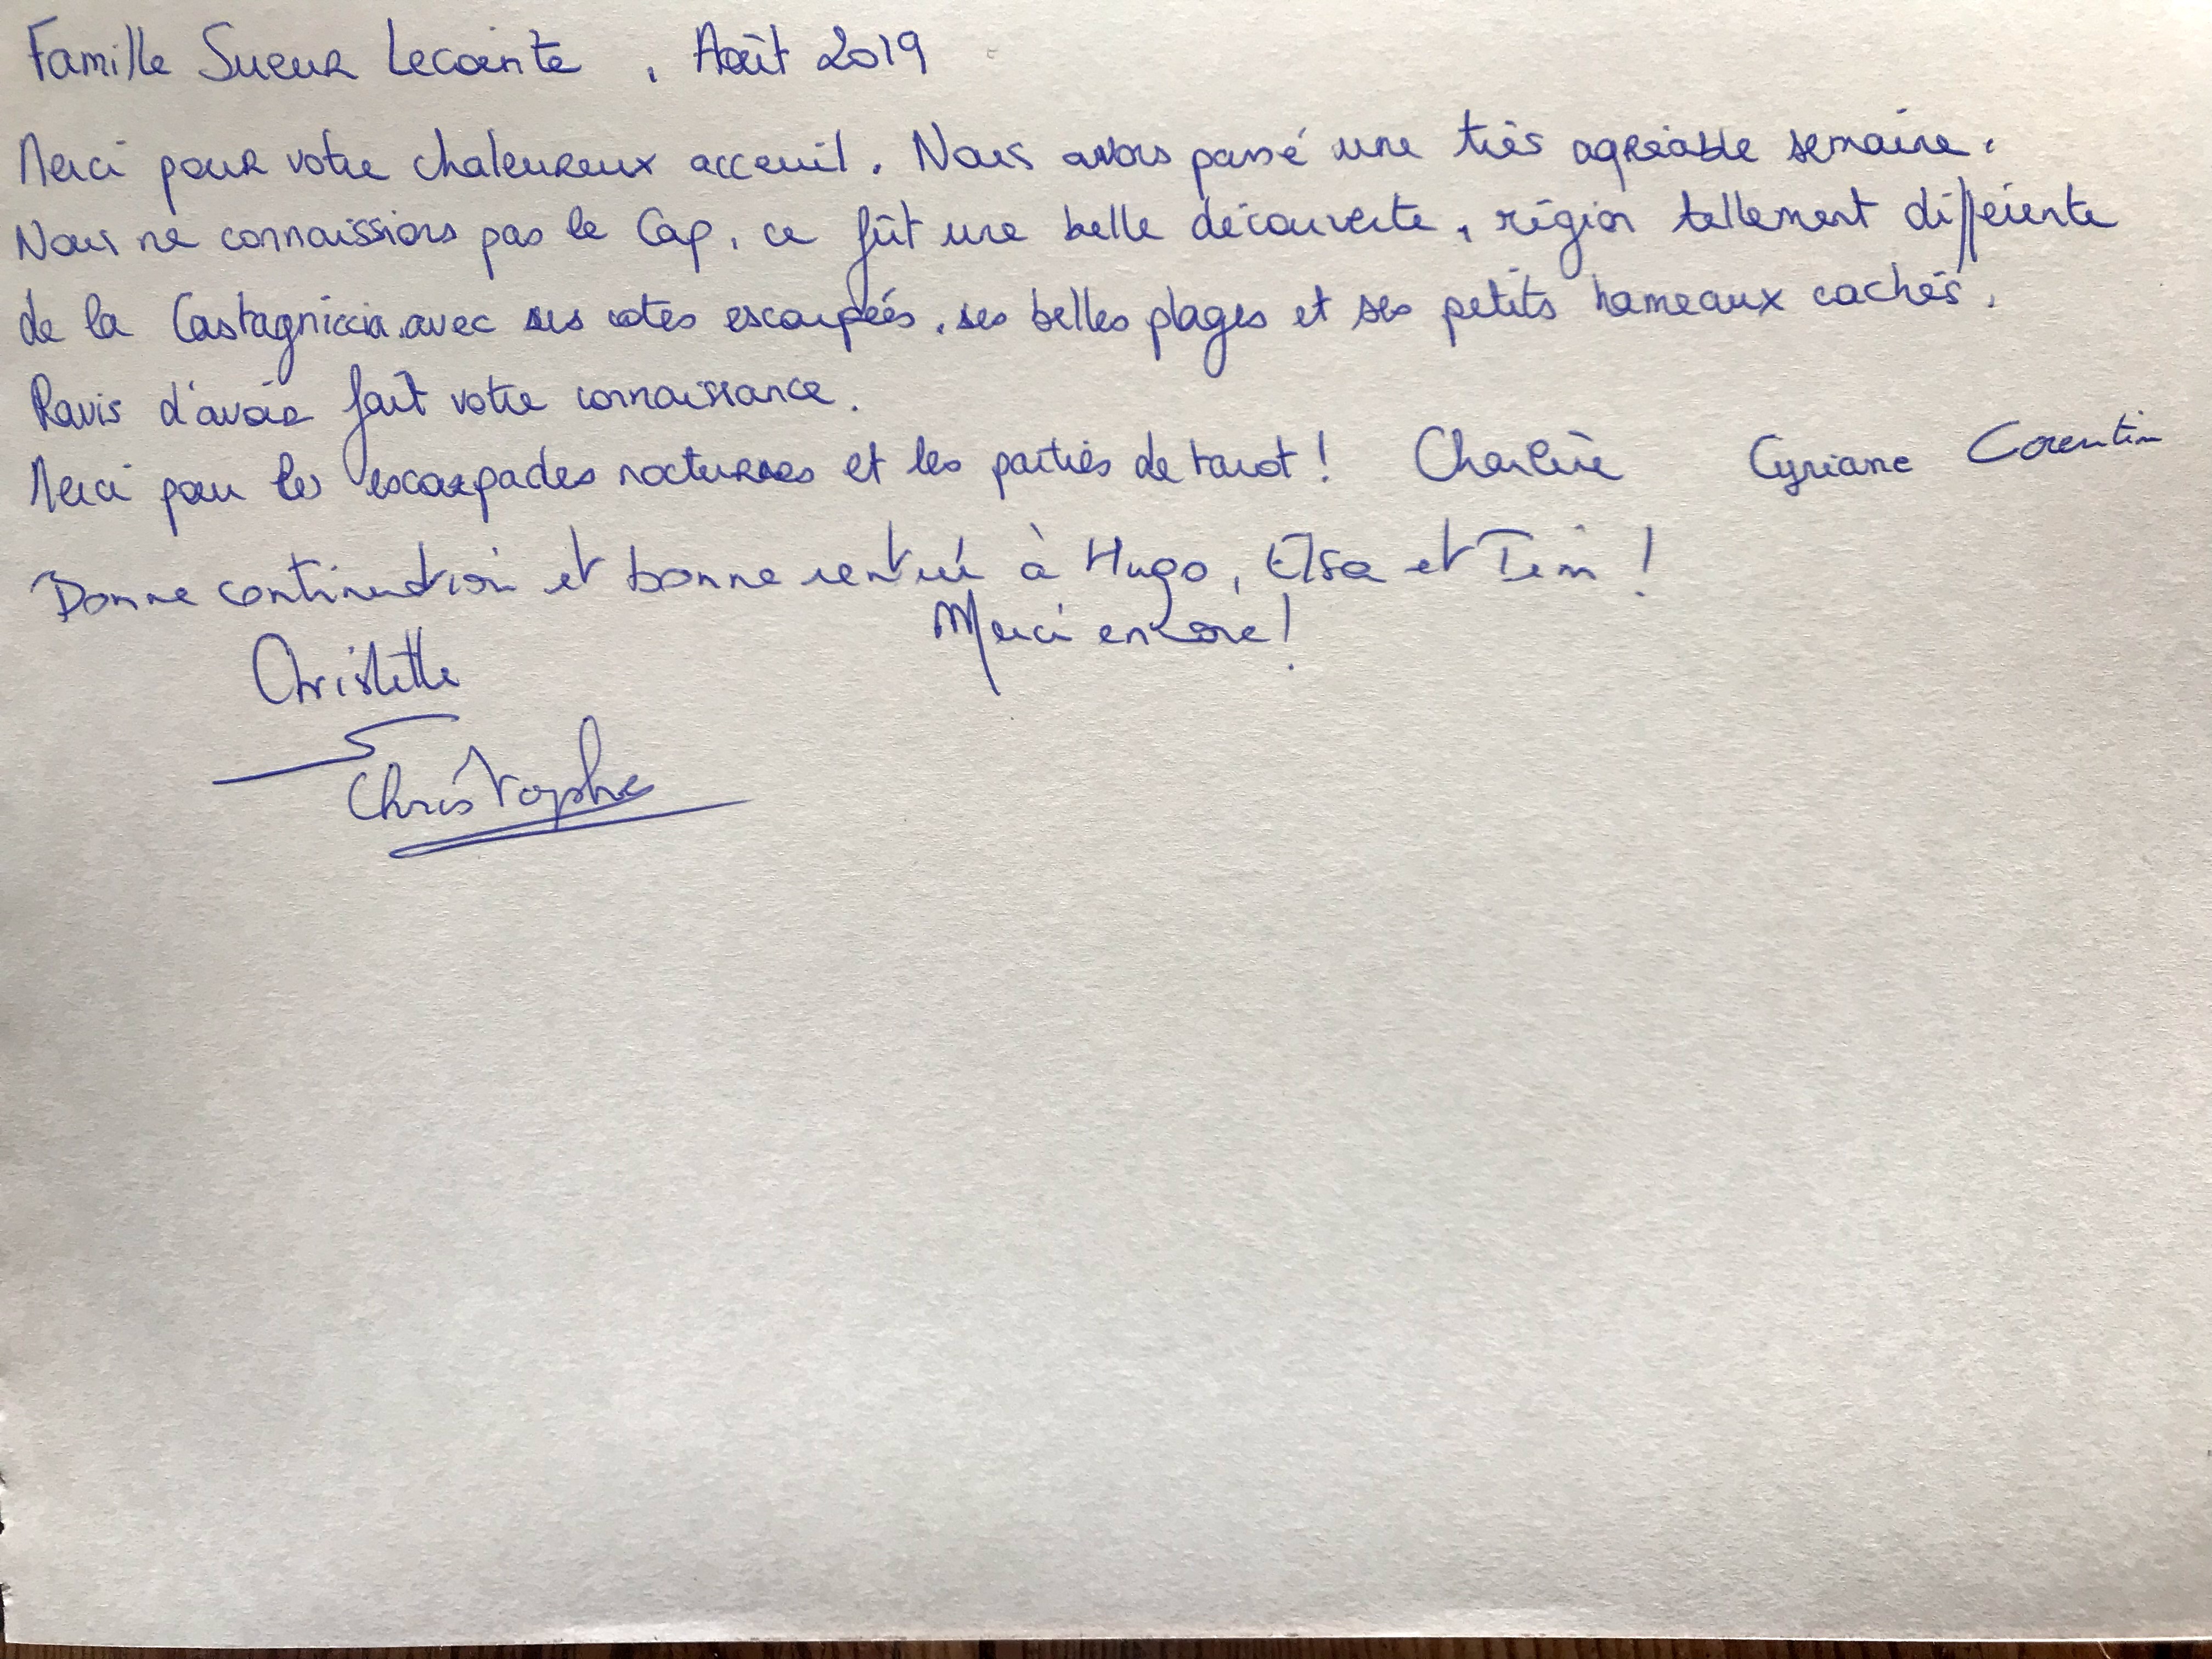 Famille Sueur Lecointe, Août 2019
Merci pour votre chaleureux acceuil. Nous avons passé une très agréable semaine.
Nous ne connaissions pas le Cap, ce fût une belle découverte, région tellement différente
de la Castagniccia avec ses cotes escarpées, ses belles plages et ses petits hameaux cachés.
Ravis d'avoir fait votre connaissance.
Merci pour les escarpades nocturnes et les parties de tarot ! Charlène Cyriane Corentin
Bonne continuation et bonne rentrée à Hugo, Elsa et Tim !
Merci encore !
Christelle
Christophe